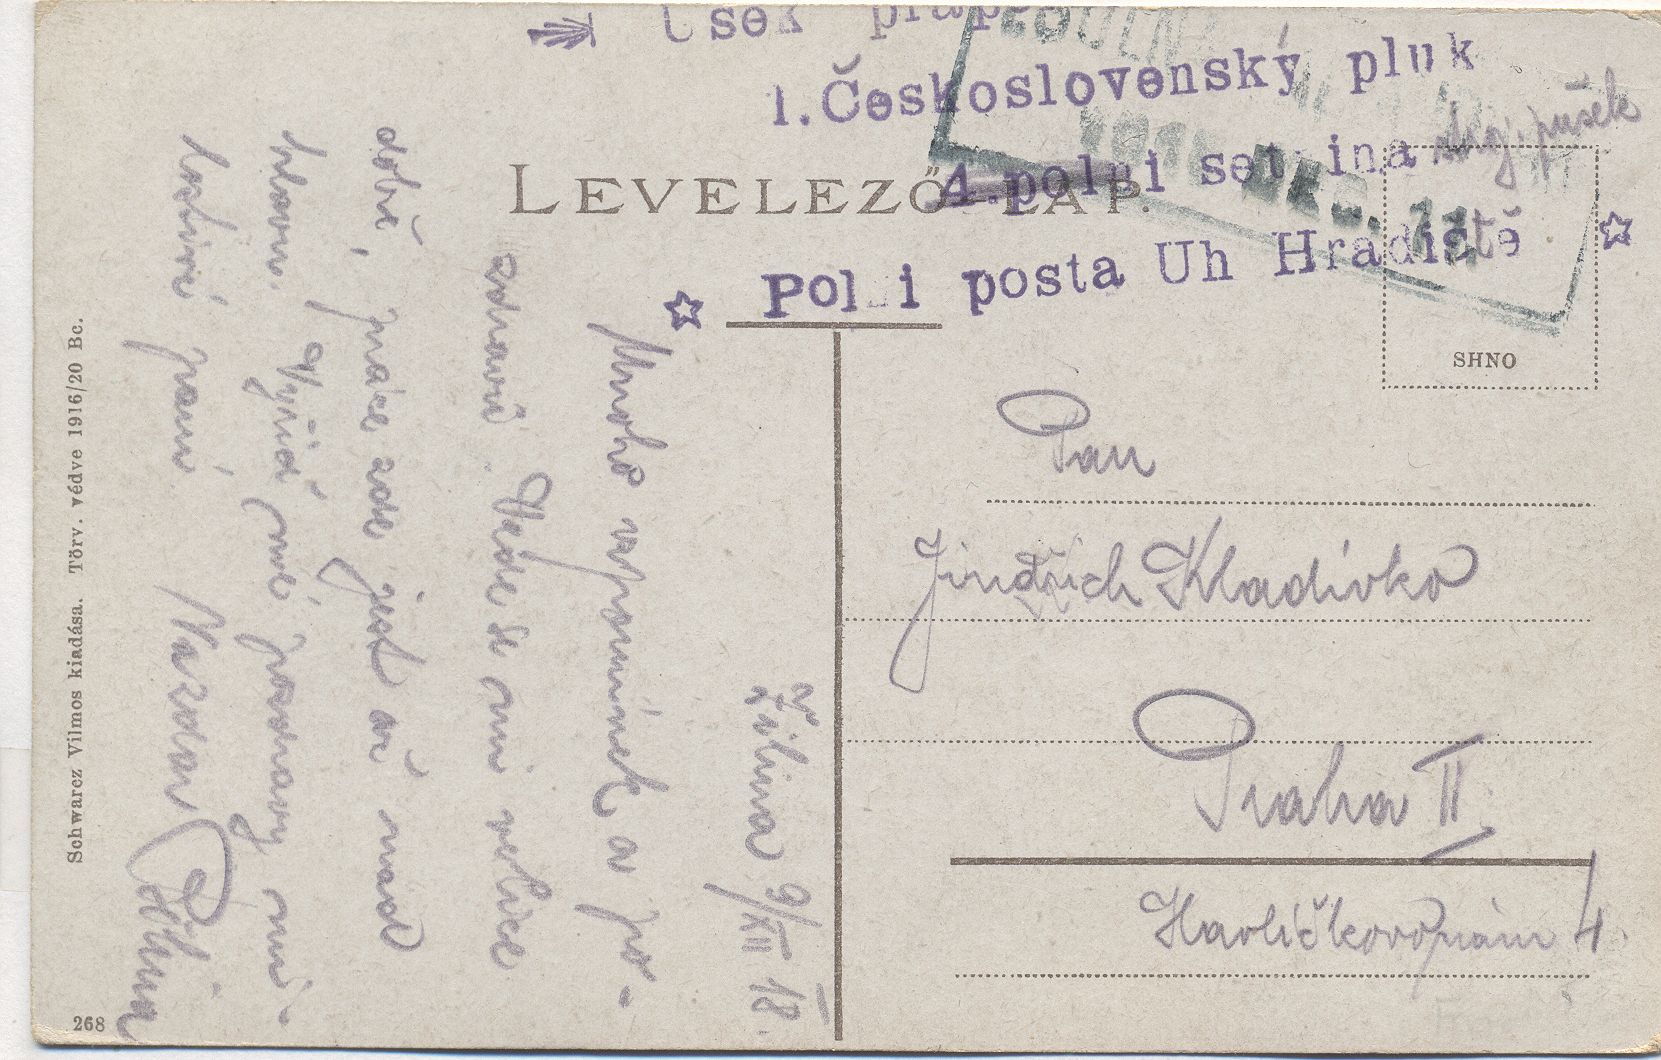 Úsek
1. Československý pluk
4. polní setnina stroj. pušek
Polní posta Uh Hradiště
LEVELEZŐ-LAP.
SHNO
Žilina 9/XII 18.
Mnoho vzpomínek a po-
zdravů. Vede se mi velice
dobře, práce zde jest ač nás
hlavu. Vyřiď mé pozdravy mi-
lostivé paní. Nazdar
Pan
Jindřich Kladívko
Praha II
Havlíčkovo nám 4.
Schwarcz Vilmos kiadása. Törv. védve 1916/20 Bc.
268